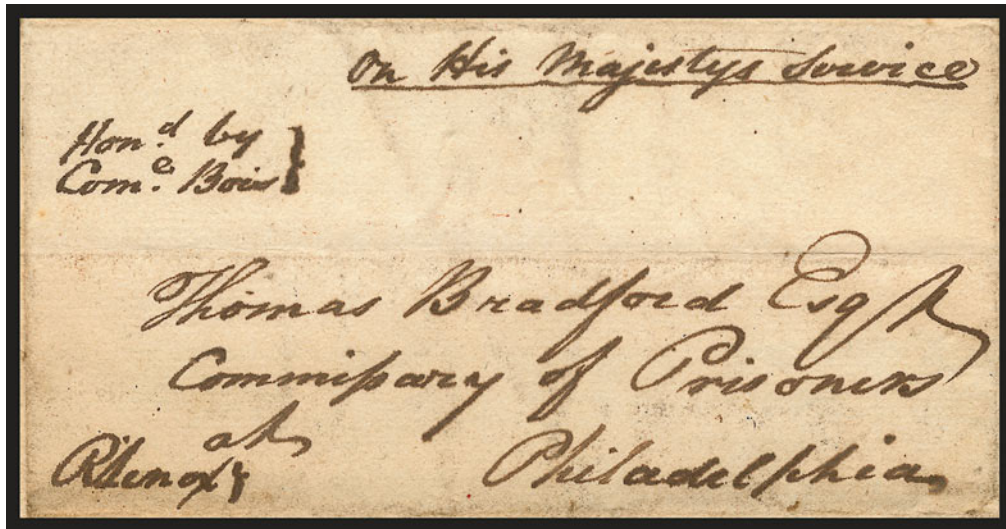 On His Majestys Service
Hon.d by
Com.e Bois
Thomas Bradford Esqr
Commissary of Prisoners
at
Philadelphia